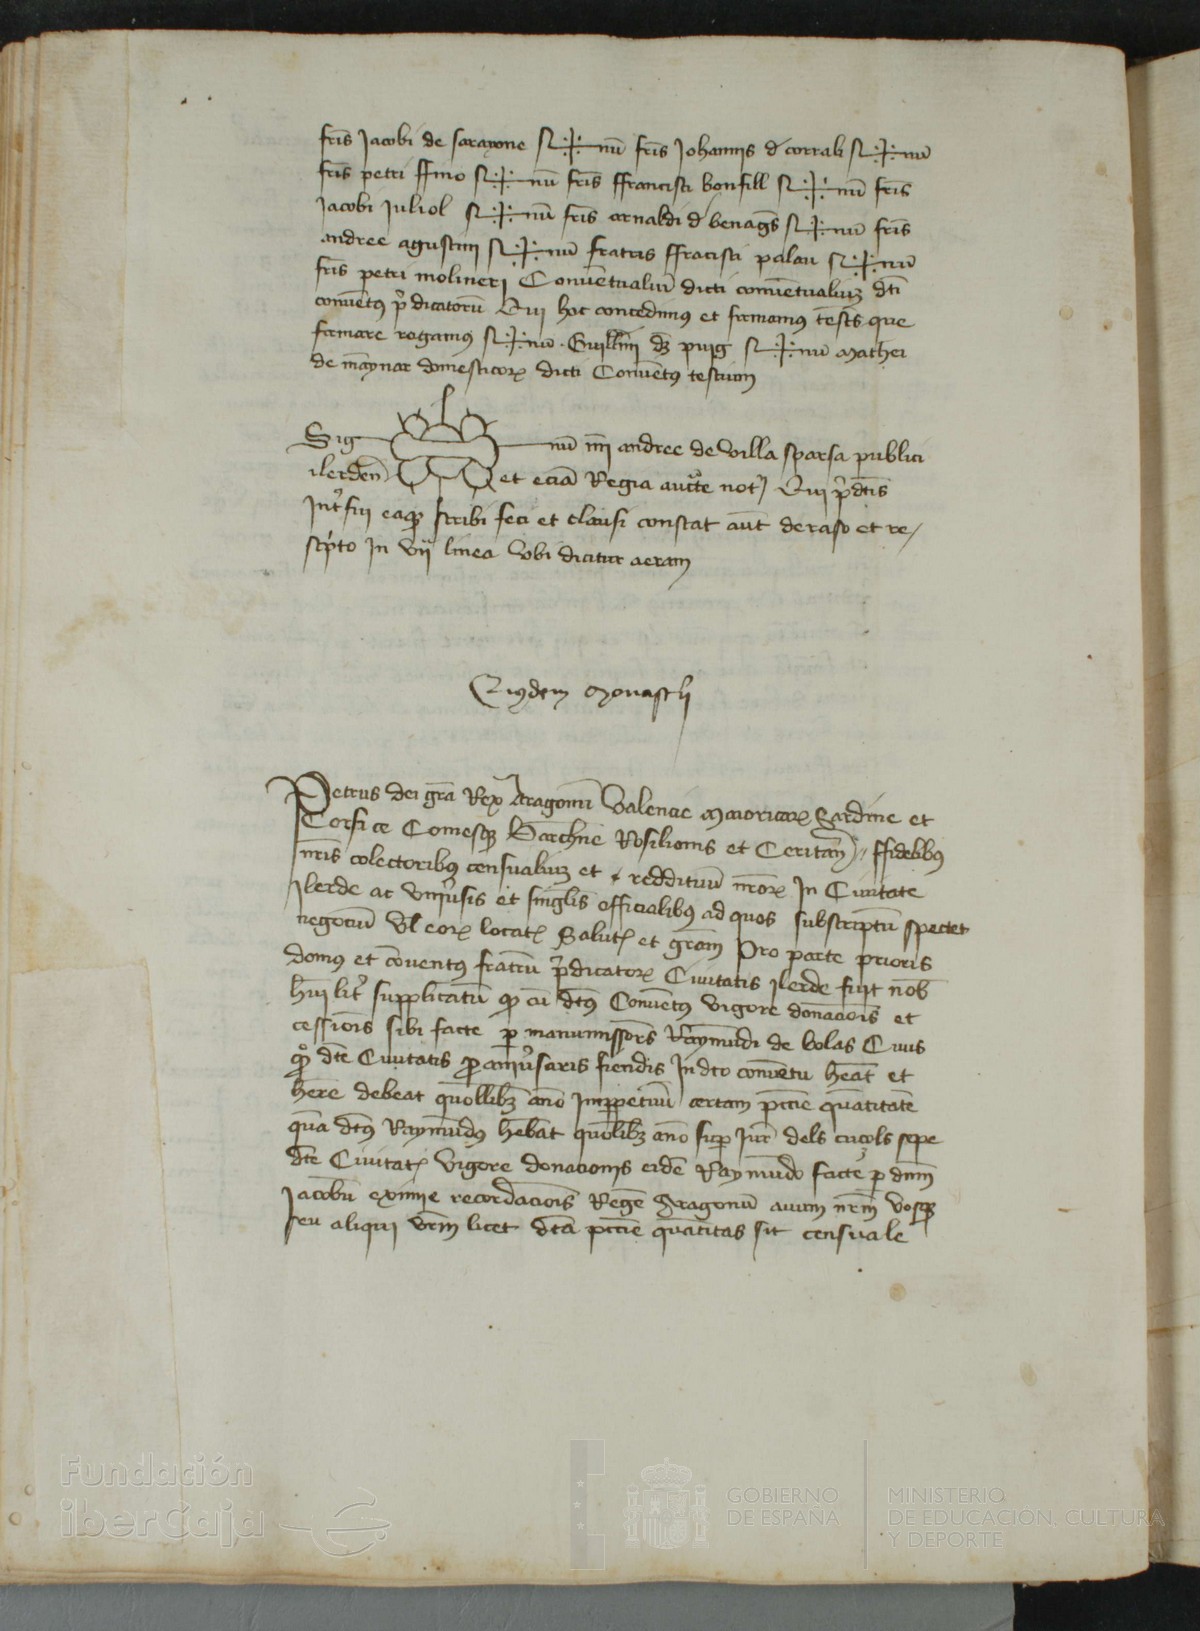 fris Jacobi de sarayone S+num fris Johannis d corrali S+num
fris petri ffino S+num fris ffrancisci bonfill S+num fris
Jacobi Juliol S+num fris arnaldi d benages S+num fris
andree agustini S+num fratris ffracisci palau S+num
fris petri molinerj Conventualium dicti conventualium dti
conventus predicatorum Qui hoc concedimus et firmamus testes que
firmare rogamus S+num Guillmi de puig S+num Mathei
de maynar domesticorum dicti Conventus testium
Sig num mei andree de villa sparsa publici
ilerden et eciam Regia aucte not Qui predictis
Interfui eaque scribi feci et clausi constat aut de raso et re
scripto In vij linea Vbi dicitur aeram
Eiusdem Monasterij
Petrus dei gra Rex Aragonum Valencie Maioricarum Sardinie et
Corsice Comesque Barchne Rosilionis et Ceritan ffidelibus
nris colectoribus censualium et reddituum nrorum In Civitate
Ilerde ac universis et singlis officialibus ad quos subscriptum spectet
negocium vel eorum locat Salut et gram Pro parte prioris
domus et conventus fratrum predicatorum Civitatis Ilerde fuit nob
humiliter supplicatum quod cum dtus Conventus vigore donacionis et
cessionis sibi facte per manumissores Raymundi de bolas Civis
dte Civitatis pro aniversaris fiendis In dto conventu heat et
here debeat quollibz ano Imperpetuum certam pctcie quantitate
qua dtus Raymundus hebat quolibz ano sup Jur dels cuçols sepe
dte Civitat vigore donacionis eidem Raymundo facte per dnm
Jacobum eximie recordacionis Regem Aragonum avum nrm vosque
seu aliqui vrm licet dta pctcie quantitas sit censuale